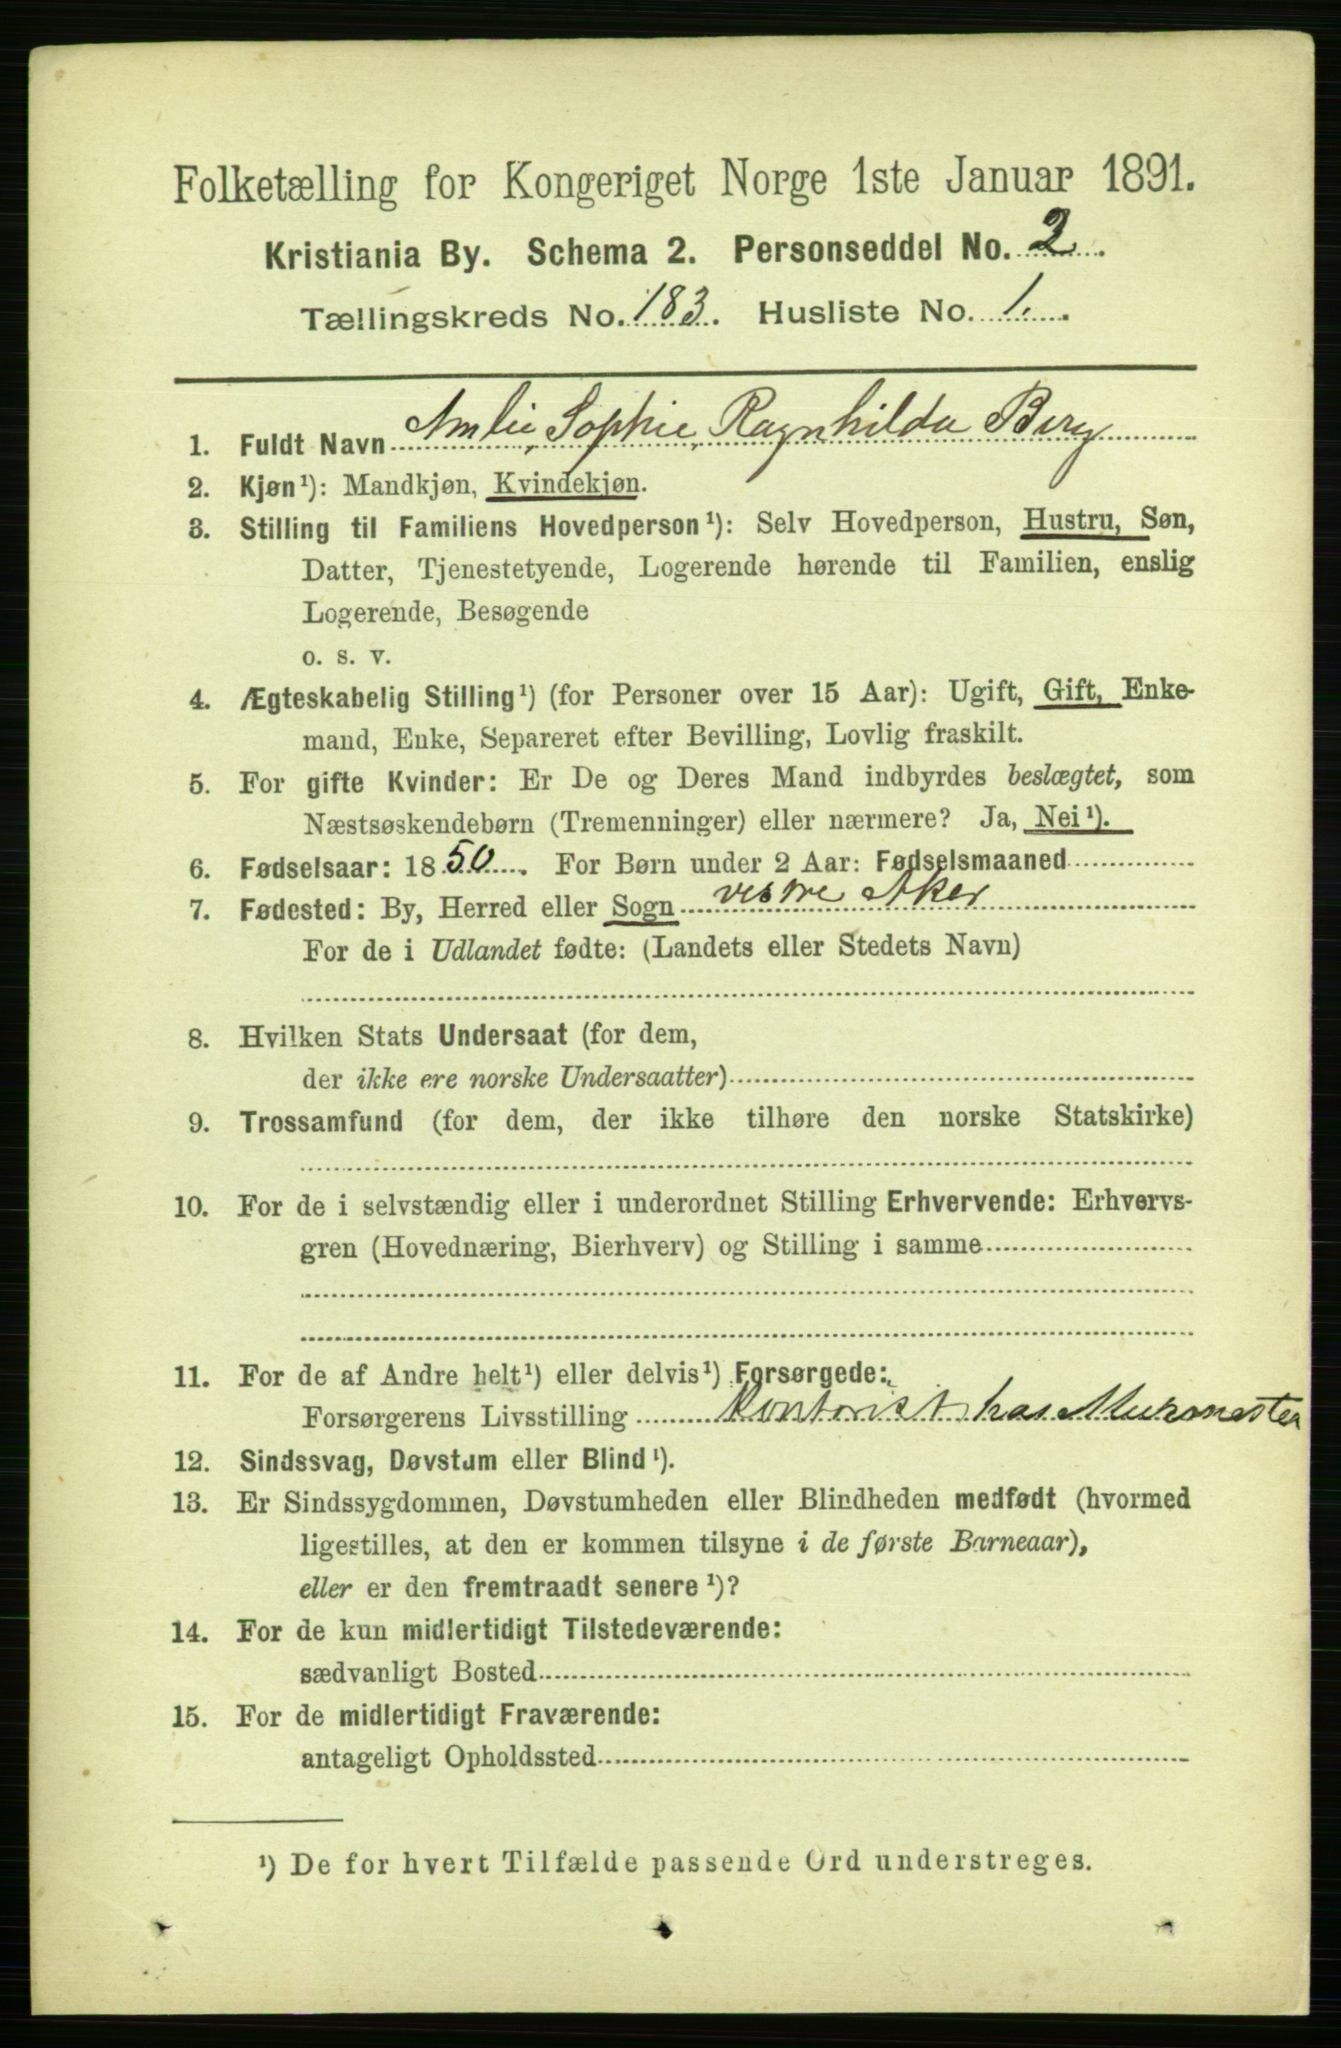 Folketælling for Kongeriget Norge 1ste Januar 1891.
Kristiania By. Schema 2. Personseddel No. 2.
Tællingskreds No. 183. Husliste No. 1.
1. Fuldt Navn Amlie, Sophie, Ragnhilda Berg
2. Kjøn¹): Mandkjøn, Kvindekjøn.
3. Stilling til Familiens Hovedperson¹): Selv Hovedperson, Hustru, Søn,
Datter, Tjenestetyende, Logerende hørende til Familien, enslig
Logerende, Besøgende
o. s. v.
4. Ægteskabelig Stilling¹) (for Personer over 15 Aar): Ugift, Gift, Enke-
mand, Enke, Separeret efter Bevilling, Lovlig fraskilt.
5. For gifte Kvinder: Er De og Deres Mand indbyrdes beslægtet, som
Næstsøskendebørn (Tremenninger) eller nærmere? Ja, Nei¹).
6. Fødselsaar: 1850. For Børn under 2 Aar: Fødselsmaaned
7. Fødested: By, Herred eller Sogn vestre Aker
For de i Udlandet fødte: (Landets eller Stedets Navn)
8. Hvilken Stats Undersaat (for dem,
der ikke ere norske Undersaatter)
9. Trossamfund (for dem, der ikke tilhøre den norske Statskirke)
10. For de i selvstændig eller i underordnet Stilling Erhvervende: Erhvervs-
gren (Hovednæring, Bierhverv) og Stilling i samme
11. For de af Andre helt¹) eller delvis¹) Forsørgede:
Forsørgerens Livsstilling Kontorist hos Muhrmester
12. Sindssvag, Døvstum eller Blind¹).
13. Er Sindssygdommen, Døvstumheden eller Blindheden medfødt (hvormed
ligestilles, at den er kommen tilsyne i de første Barneaar),
eller er den fremtraadt senere¹)?
14. For de kun midlertidigt Tilstedeværende:
sædvanligt Bosted
15. For de midlertidigt Fraværende:
antageligt Opholdssted
¹) De for hvert Tilfælde passende Ord understreges.